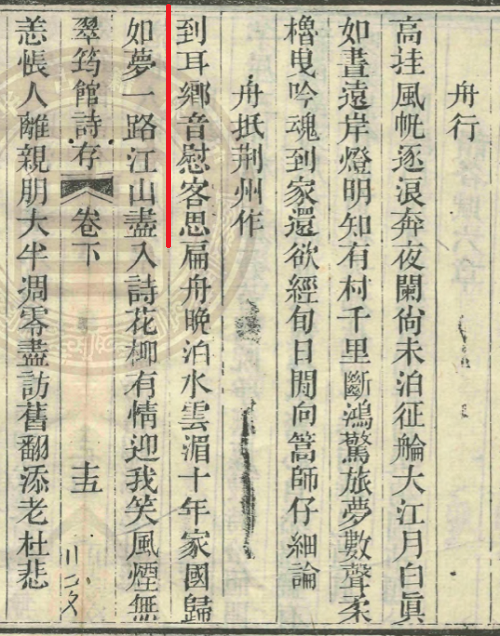 舟行
高挂風帆逐浪奔夜闌尙未泊征艑大江月白眞
如晝遠岸燈明知有村千里斷鴻驚旅夢數聲柔
櫓曳吟魂到家還欲經旬日閒向篙師仔細論
舟抵荆州作
到耳鄉音慰客思扁舟晚泊水雲湄十年家國歸
如夢一路江山盡入詩花柳有情迎我笑風煙無
翠筠館詩存 卷下 十五
恙悵人離親朋大半凋零盡訪舊翻添老杜悲